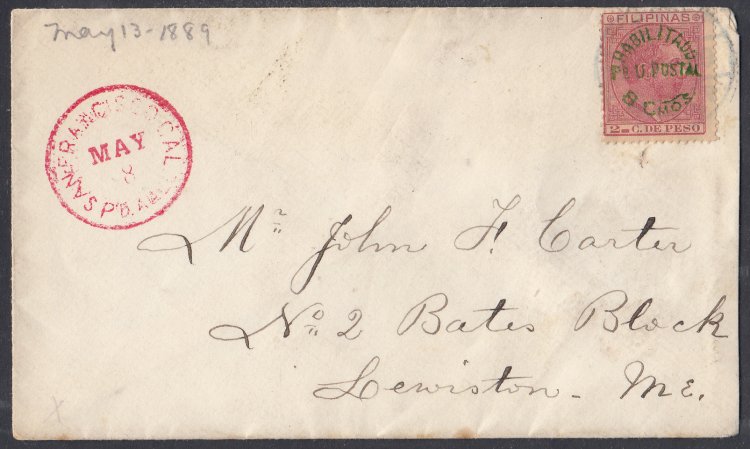 May 13-1889
FILIPINAS
HABILITADO
PA U. POSTAL
8 CMOS
2 4/8 C. DE PESO
SAN FRANCISCO CAL
MAY
8
PD. ALL
Mr. John F. Carter
No. 2 Bates Block
Lewiston - Me.